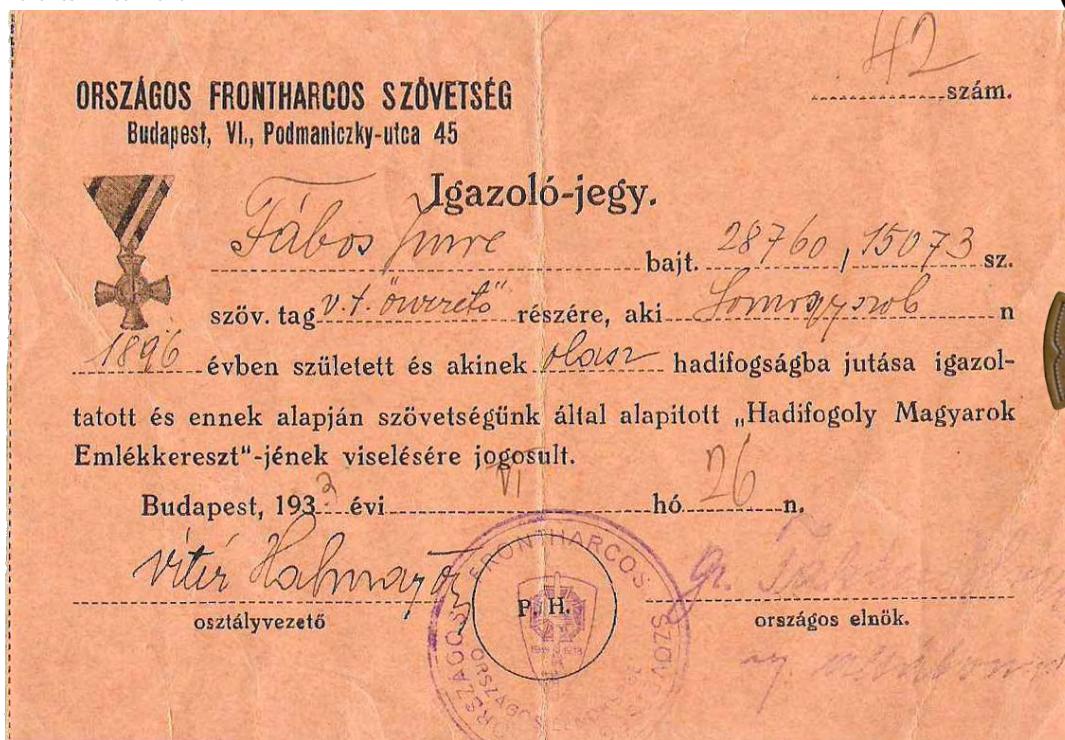 42
ORSZÁGOS FRONTHARCOS SZÖVETSÉG szám.
Budapest, VI., Podmaniczky-utca 45
Igazoló-jegy.
Fábos Imre bajt. 28760 / 15073 sz.
szöv. tag v. t. részére, aki Somogyszob n
1896 évben született és akinek olasz hadifogságba jutása igazol-
tatott és ennek alapján szövetségünk által alapitott „Hadifogoly Magyarok
Emlékkereszt"-jének viselésére jogosult.
Budapest, 1933 évi VI hó 26 n.
vitéz
osztályvezető P. H. országos elnök.
ORSZÁGOS FRONTHARCOS